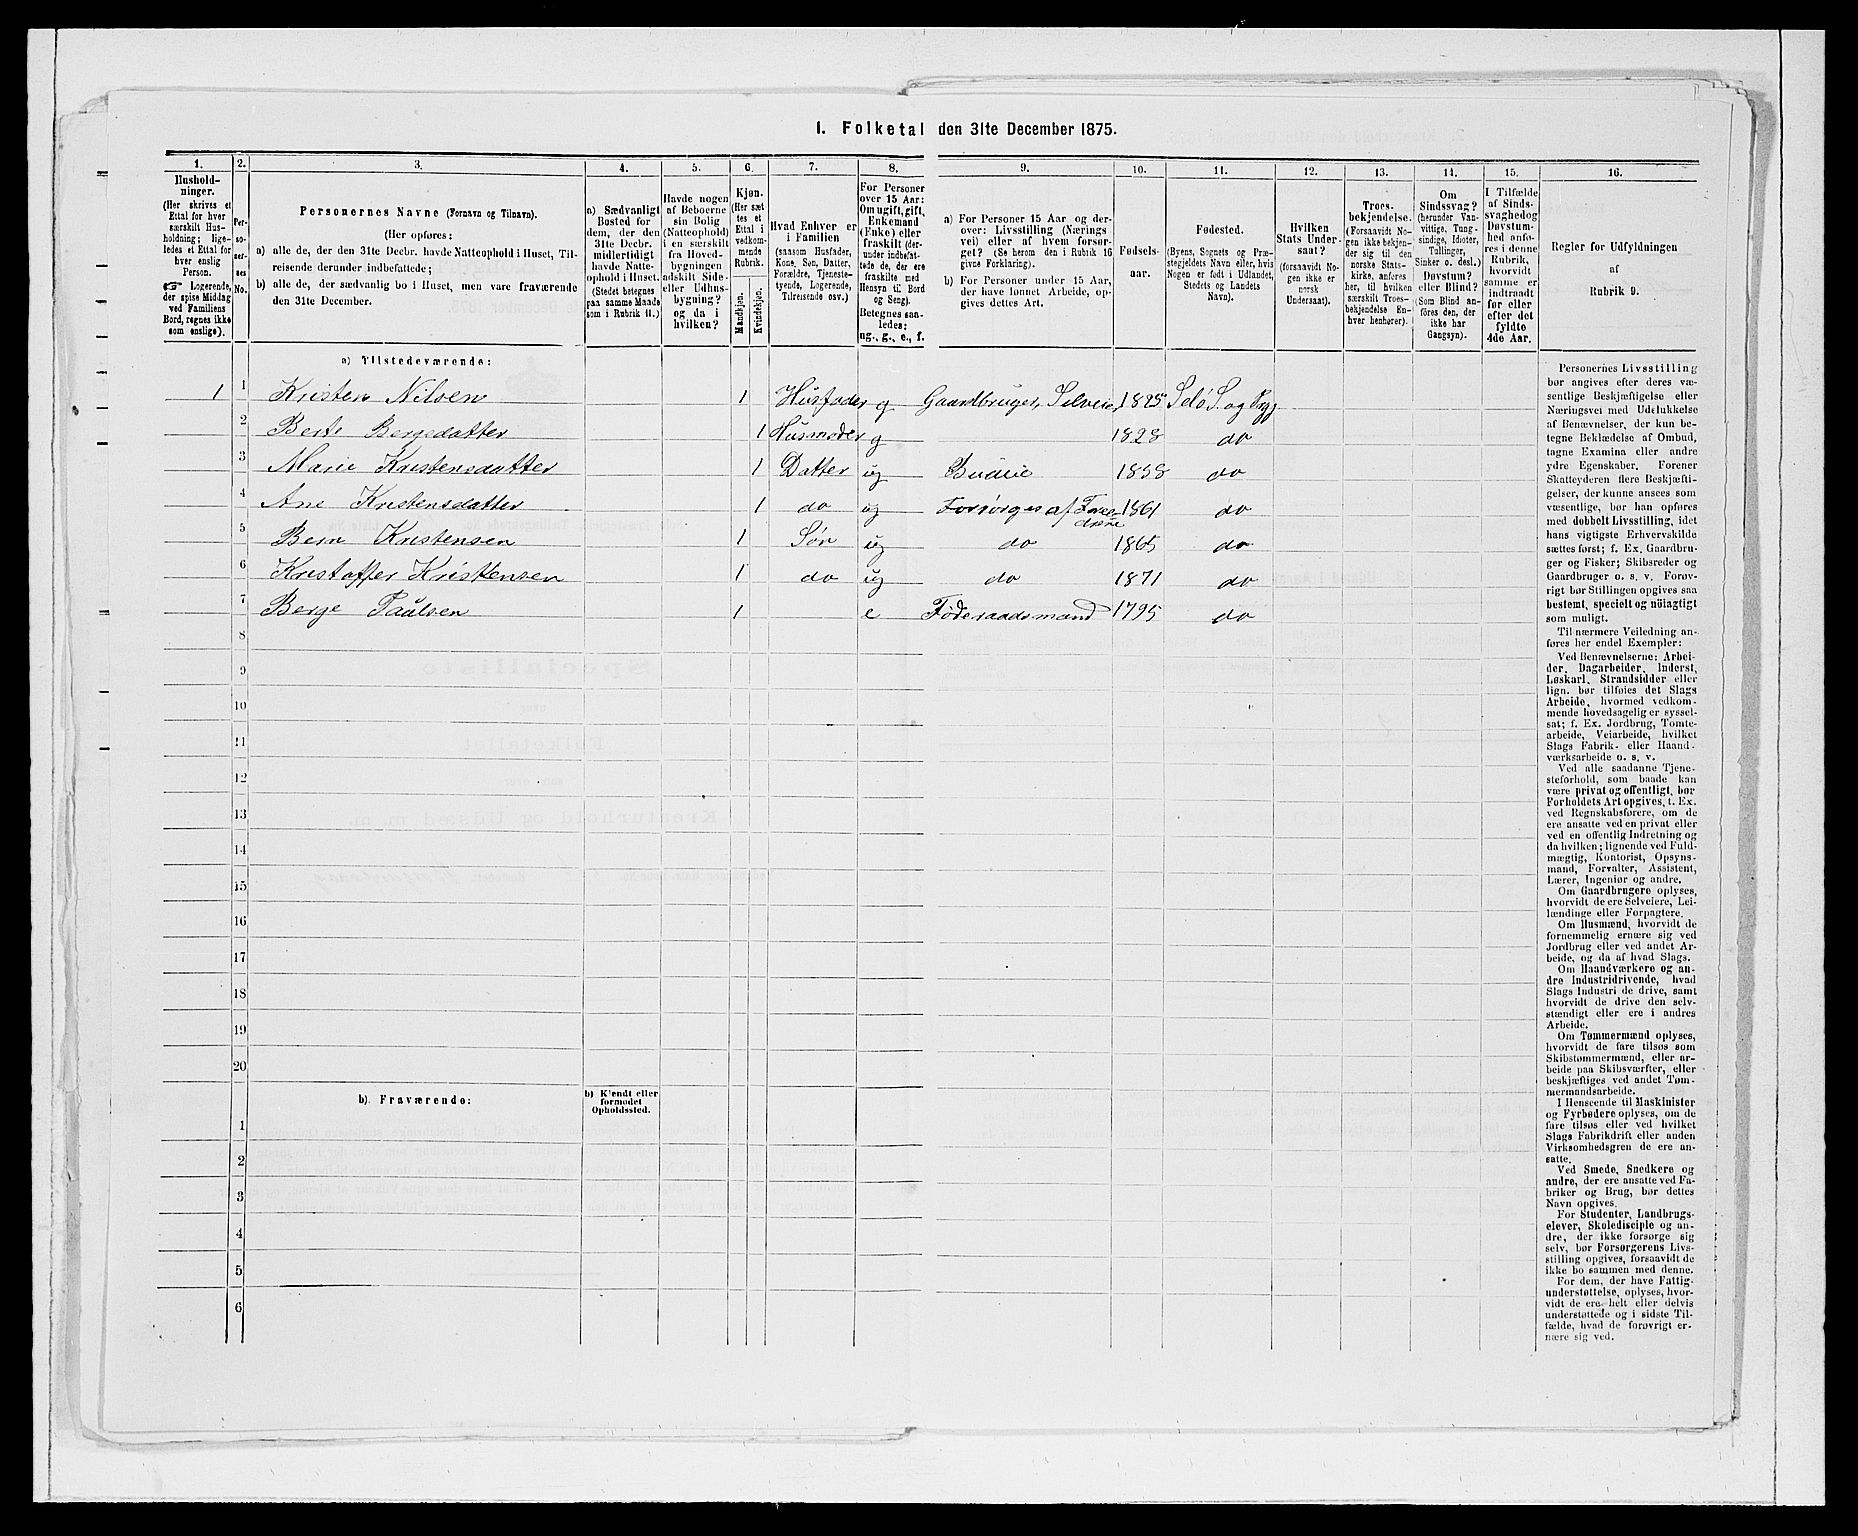 I. Folketal den 31te December 1875.
1. 2. 3. 4. 5. 6. 7. 8. 9. 10. 11. 12. 13. 14. 15. 16.
Hushold-
ninger.
(Her skrives et
Ettal for hver
særskilt Hus-
holdning; lige-
ledes et Ettal
for hver
enslig Person.
☞ Logerende,
der spise Middag
ved Familiens
Bord, regnes ikke
som enslige).
Per-
so-
ner-
nes
No.
Personernes Navne (Fornavn og Tilnavn).
(Her opføres:
a) alle de, der den 31te Decbr. havde Natteophold i Huset, Til-
reisende derunder indbefattede;
b) alle de, der sædvanlig bo i Huset, men vare fraværende
den 31te December.
a) Sædvanligt
Bosted for
dem, der den
31te Decbr.
midlertidigt
havde Natte-
ophold i Huset.
(Stedet betegnes
paa samme Maade
som i Rubrik 11.)
Havde nogen
af Beboerne
sin Bolig
(Natteophold)
i en særskilt
fra Hoved-
bygningen
adskilt Side-
eller Udhus-
bygning?
og da i
hvilken?
Kjøn.
(Her sæt-
tes et
Ettal i
vedkom-
mende
Rubrik.
Mandkjøn.
Kvindekjøn.
Hvad Enhver er
i Familien
(saasom Husfader,
Kone, Søn, Datter,
Forældre, Tjeneste-
tyende, Logerende,
Tilreisende osv.)
For Personer
over 15 Aar:
Om ugift, gift,
Enkemand
(Enke) eller
fraskilt (der-
under indbefat-
tede de, der ere
fraskilte med
Hensyn til Bord
og Seng).
Betegnes saa-
ledes:
ug., g., e., f.
a) For Personer 15 Aar og der-
over: Livsstilling (Nærings
vei) eller af hvem forsør-
get? (Se herom den i Rubrik 16
givne Forklaring).
b) For Personer under 15 Aar,
der have lønnet Arbeide, op-
gives dettes Art.
Fødsels-
aar.
Fødested.
(Byens, Sognets og Præ-
stegjeldets Navn eller, hvis
Nogen er født i Udlandet,
Stedets og Landets
Navn).
Hvilken
Stats Under-
saat?
(forsaavidt No-
gen ikke er
norsk
Undersaat).
Troes-
bekjendelse.
(Forsaavidt No-
gen ikke bekjen-
der sig til den
norske Stats-
kirke, anføres
her, til hvilken
særskilt Troes-
bekjendelse En-
hver henhører).
Om
Sindssvag?
(herunder Van-
vittige, Tung-
sindige, Idioter,
Tullinger,
Sinker o. desl.)
Døvstum?
eller Blind?
(Som Blind an-
føres den, der
ikke har
Gangsyn).
I Tilfælde
af Sinds-
svaghed og
Døvstum-
hed anfø-
res i denne
Rubrik,
hvorvidt
samme er
indtraadt
før eller
efter det
fyldte
4de Aar.
Regler for Udfyldningen
af
Rubrik 9.
a) Tilstedeværende:
1 1 Kristen Nilsen 1 Husfader g Gaardbruger, Selveier 1825 Selø S. og
2 Berte Bergedatter 1 Husmoder g 1828 do
3 Marie Kristensdatter 1 Datter ug Budeie 1858 do
4 Ane Kristensdatter 1 do ug Forsørges af Forel-
drene 1861 do
5 Kristensen 1 Søn ug do 1865 do
6 Kristoffer Kristensen 1 do ug do 1871 do
7 Berge Paulsen 1 e Føderaadsmand 1795 do
8
9
10
11
12
13
14
15
16
17
18
19
20
b). Fraværende:
b) Kjendt eller
formodet
Opholdssted.
1
2
3
4
5
6
Personernes Livsstilling
bør angives efter deres væ-
sentlige Beskjæftigelse eller
Næringsvei med Udelukkelse
af Benævnelser, der kun be-
tegne Beklædelse af Ombud,
tagne Examina eller andre
ydre Egenskaber. Forener
Skatteyderen flere Beskjæfti-
gelser, der kunne ansees som
væsentlige, bør han opføres
med dobbelt Livsstilling, idet
hans vigtigste Erhvervskilde
sættes først; f. Ex. Gaardbru-
ger og Fisker; Skibsreder og
Gaardbruger o. s. v. Forøv-
rigt bør Stillingen opgives saa
bestemt, specielt og nöiagtigt
som muligt.
Til nærmere Veiledning an-
føres her endel Exempler:
Ved Benævnelserne: Arbei-
der, Dagarbeider, Inderst,
Løskarl, Strandsidder eller
lign. bør tilføies det Slags
Arbeide, hvormed vedkom-
mende hovedsagelig er syssel-
sat; f. Ex. Jordbrug, Tomte-
arbeide, Veiarbeide, hvilket
Slags Fabrik- eller Haand-
værksarbeide o. s. v.
Ved alle saadanne Tjene-
steforhold, som baade kan
være privat og offentligt, bør
Forholdets Art opgives, t. Ex.
ved Regnskabsførere, om de
ere ansatte ved en privat eller
ved en offentlig Indretning og
da hvilken; lignende ved Fuld-
mægtig, Kontorist, Opsyns-
mand, Forvalter, Assistent,
Lærer, Ingeniør og andre.
Om Gaardbrugere oplyses,
hvorvidt de ere Selveiere, Lei-
lændinge eller Forpagtere.
Om Husmænd, hvorvidt de
fornemmelig ernære sig ved
Jordbrug eller ved andet Ar-
beide, og da af hvad Slags.
Om Haandværkere og an-
dre Industridrivende, hvad
Slags Industri de drive, samt
hvorvidt de drive den selv-
stændigt eller ere i andres
Arbeide.
Om Tømmermænd oplyses,
hvorvidt de fare tilsøs som
Skibstømmermænd, eller ar-
beide paa Skibsværfter, eller
beskjæftiges ved andet Tøm-
mermandsarbeide.
I Henseende til Maskinister
og Fyrbødere oplyses, om de
fare tilsøs eller ved hvilket
Slags Fabrikdrift eller anden
Virksomhedsgren de ere an-
satte.
Ved Smede, Snedkere og
andre, der ere ansatte ved Fa-
briker og Brug, bør dettes
Navn opgives.
For Studenter, Landbrugs-
elever, Skoledisciple og an-
dre, der ikke forsørge sig
selv, bør Forsørgerens Livs-
stilling opgives, forsaavidt de
ikke bo sammen med denne.
For dem, der have Fattig-
understøttelse, oplyses, hvor-
vidt de ere helt eller delvis
understøttede og i sidste Til-
fælde, hvad de forøvrigt er-
nære sig ved.